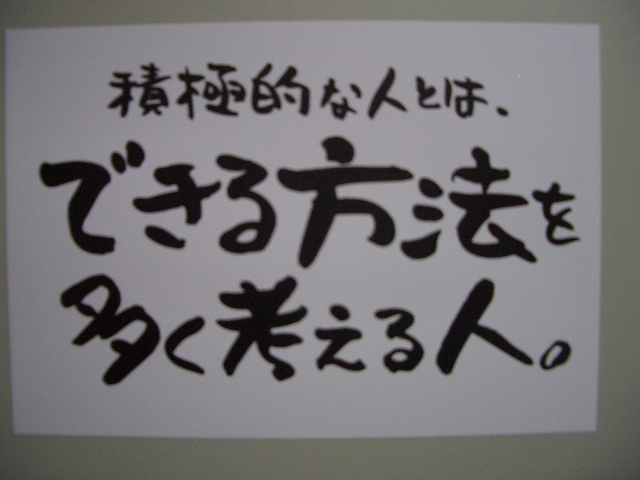 積極的な人とは、
できる方法を
多く考える人。